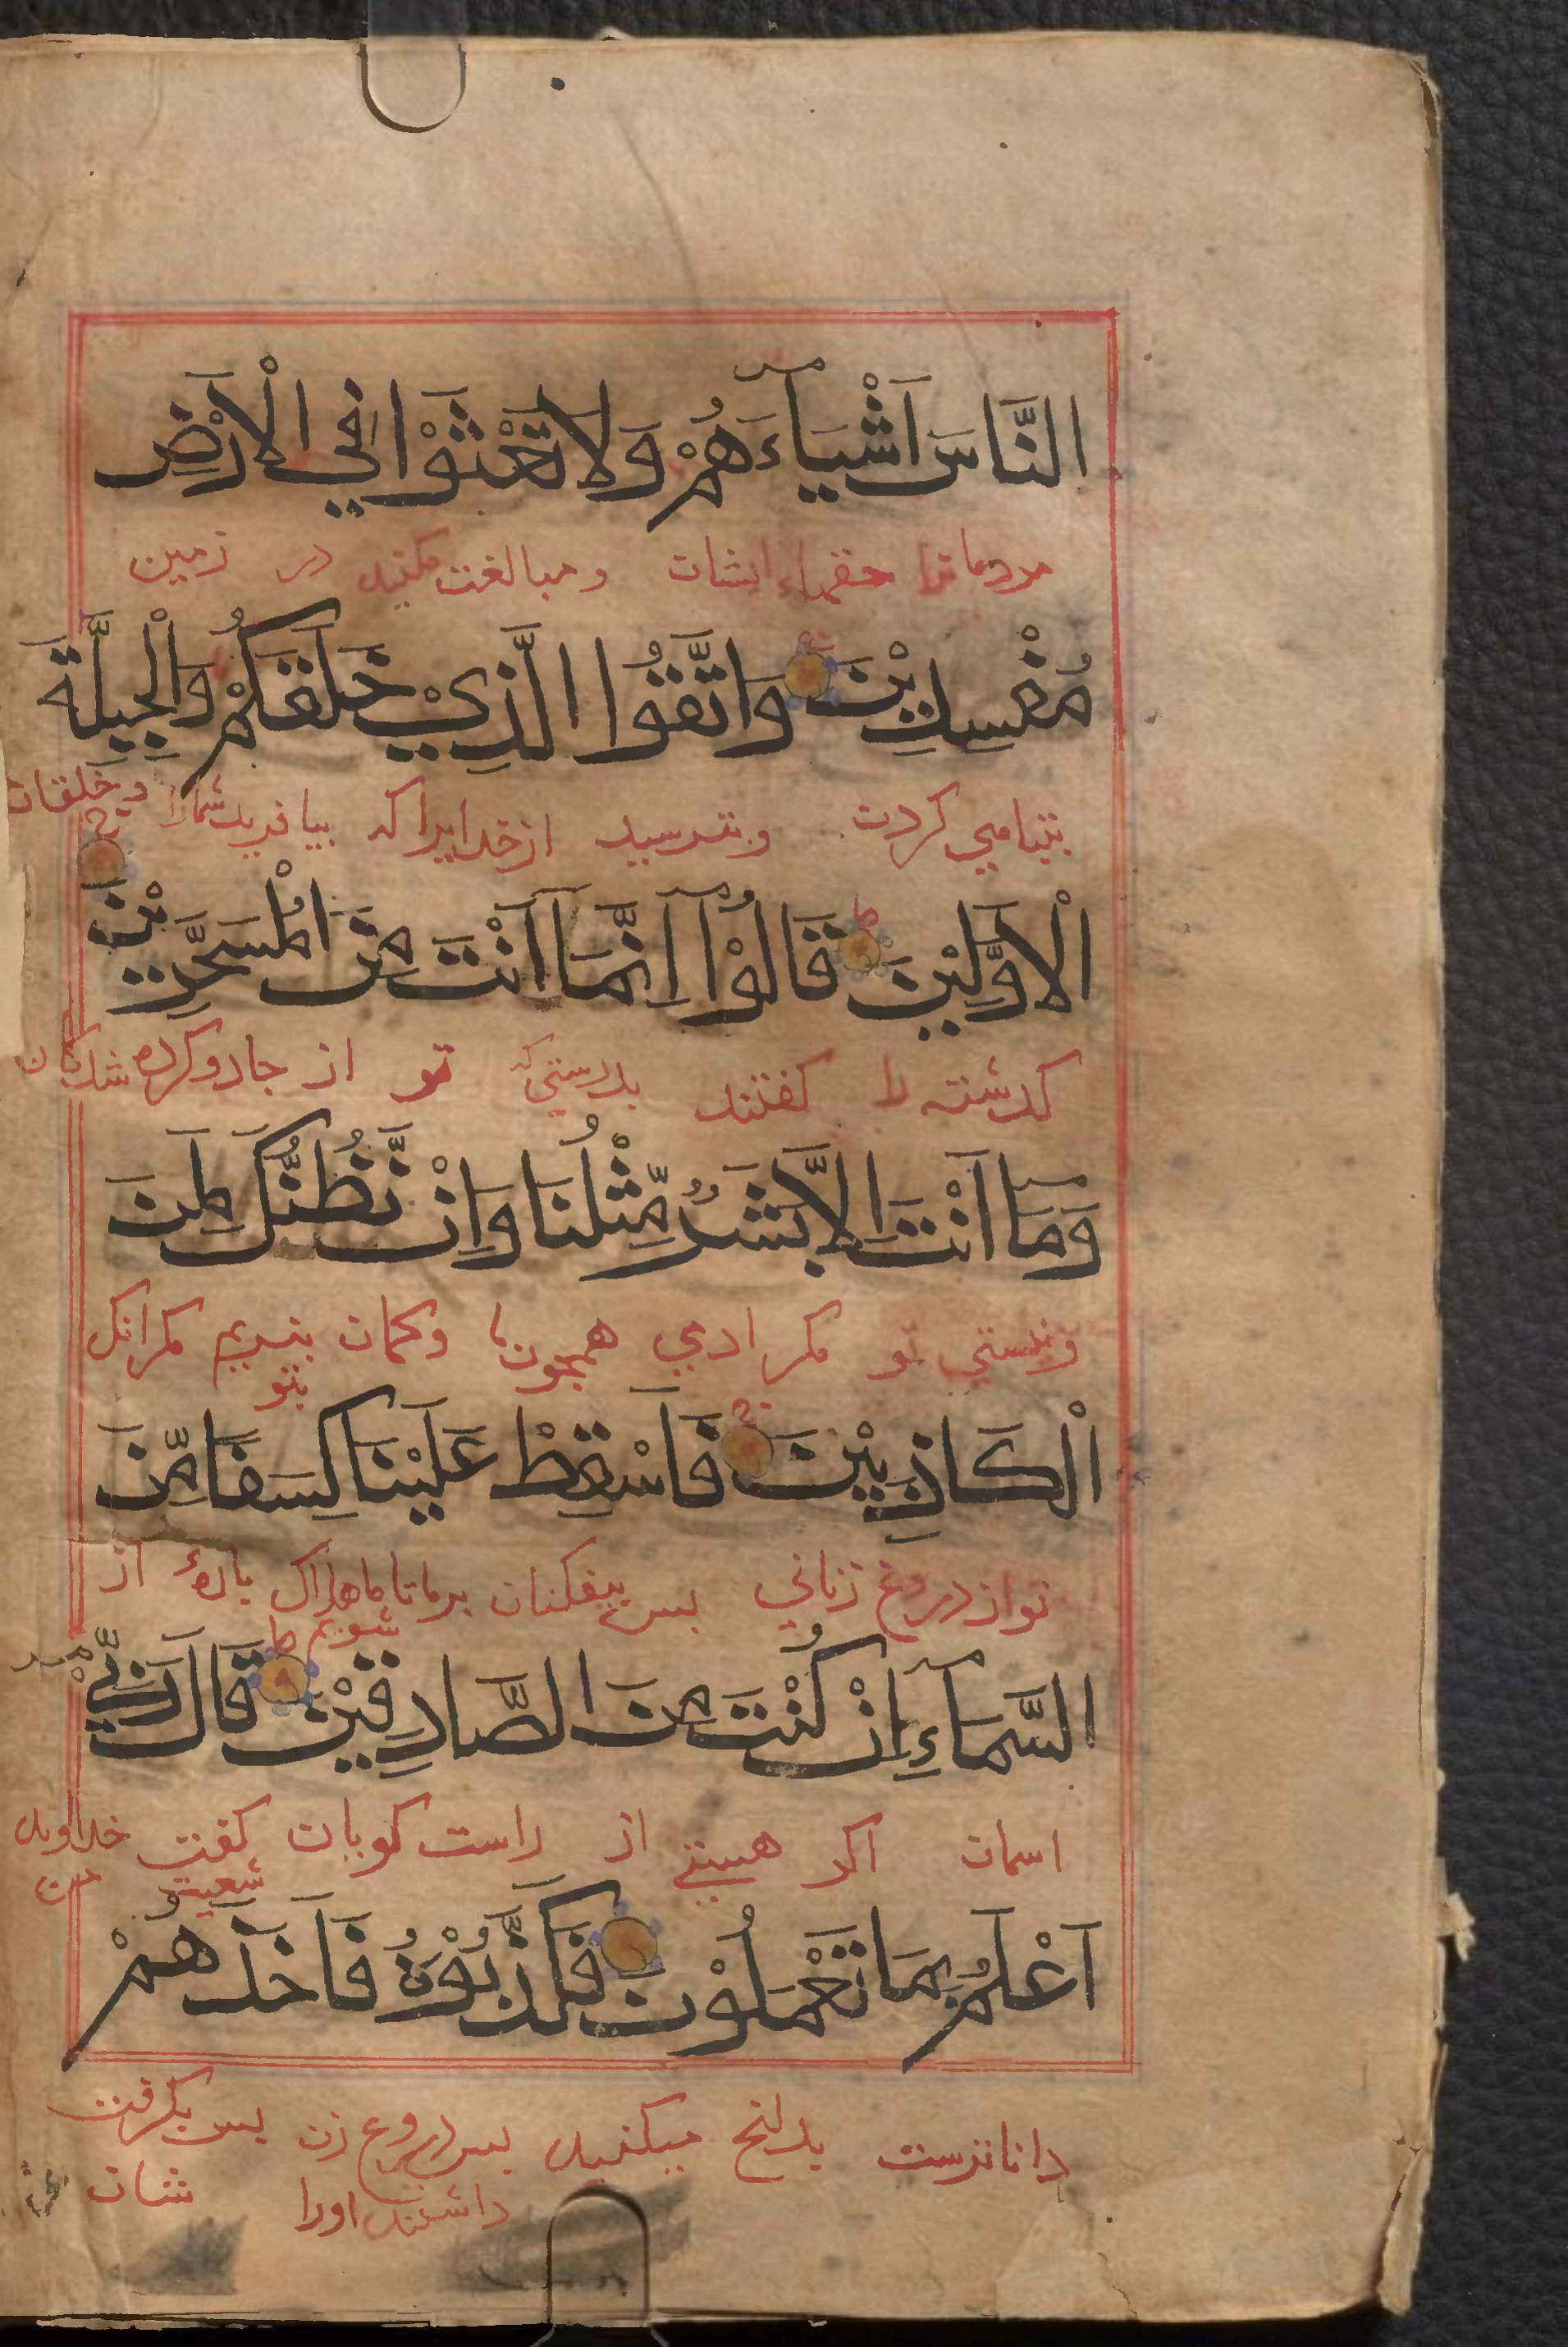 النَّاسَ اَشْيَآءَهُمْ وَلَا تَعْثَوْا فِي الْاَرْضِ
مردمانرا حقهاء ایشان ومبالغت مکنید در زمین
مُفْسِدِيْنَ وَاتَّقُوا الَّذِيْ خَلَقَكُمْ وَالْجِبِلَّةَ
بتباهی کردن وبترسید از خدایرا که بیافرید شمارا وخلقان
الْاَوَّلِيْنَ قَالُوْٓا اِنَّمَآ اَنْتَ مِنَ الْمُسَحَّرِيْنَ
كدشته را كفتند بدرستی که تو از جادو کرده شدکان
وَمَآ اَنْتَ اِلَّا بَشَرٌ مِّثْلُنَا وَاِنْ نَّظُنُّكَ لَمِنَ
ونیستی تو مكر ادمی همچون ما وكمان نبریم مکر انک
بتو
الْكَاذِبِيْنَ فَاَسْقِطْ عَلَيْنَا كِسَفًا مِّنَ
تو از دروغ زنانی بس بیفکنان برما تا ما هلاک بارهٔ از
شویم
السَّمَآءِ اِنْ كُنْتَ مِنَ الصَّادِقِيْنَ قَالَ رَبِّيْٓ
اسمان اکر هستی از راست کویان کفت خداوند
شعیب من
اَعْلَمُ بِمَا تَعْمَلُوْنَ فَكَذَّبُوْهُ فَاَخَذَهُمْ
داناترست بدانج میکنید بس دروغ زن بس بکرفت
داشتند اورا شان